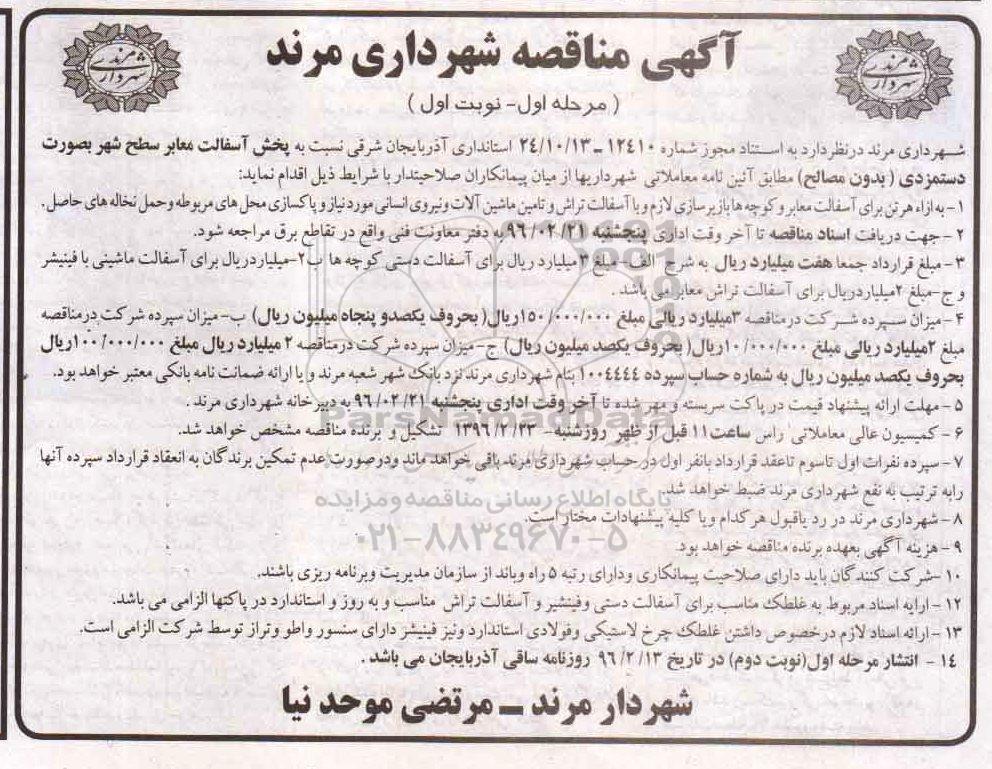 آگهی مناقصه شهرداری مرند
( مرحله اول- نوبت اول )
شهرداری مرند
شهرداری مرند
شهرداری مرند درنظردارد به استناد مجوز شماره ۱۲۴۱۰ – ۲۴/۱۰/۱۳ استانداری آذربایجان شرقی نسبت به پخش آسفالت معابر سطح شهر بصورت
دستمزدی ( بدون مصالح) مطابق آئین نامه معاملاتی شهرداریها از میان پیمانکاران صلاحیتدار با شرایط ذیل اقدام نماید:
۱- به ازاء هر تن برای آسفالت معابر و کوچه ها بازیرسازی لازم ویا آسفالت تراش و تامین ماشین آلات ونیروی انسانی مورد نیاز و پاکسازی محل های مربوطه وحمل نخاله های حاصل.
۲ - جهت دریافت اسناد مناقصه تا آخر وقت اداری پنجشنبه ۹۶/۰۲/۲۱ به دفتر معاونت فنی واقع در تقاطع برق مراجعه شود.
۳- مبلغ قرارداد جمعا هفت میلیارد ریال به شرح الف- مبلغ ۳میلیارد ریال برای آسفالت دستی کوچه ها ب۲-میلیاردریال برای آسفالت ماشینی با فینیشر
و ج-مبلغ ۲میلیاردریال برای آسفالت تراش معابر می باشد .
۴ - میزان سپرده شرکت درمناقصه ۳میلیارد ریالی مبلغ ۱۵۰/۰۰۰/۰۰۰ریال( بحروف یکصدو پنجاه میلیون ریال) ب-میزان سپرده شرکت درمناقصه
مبلغ ۲میلیارد ریالی مبلغ ۱۰/۰۰۰/۰۰۰ریال( بحروف یکصد میلیون ریال) ج-میزان سپرده شرکت درمناقصه ۲ میلیارد ریال مبلغ ۱۰۰/۰۰۰/۰۰۰ریال
بحروف یکصد میلیون ریال به شماره حساب سپرده ۱۰۰۴۴۴۴ بنام شهرداری مرند نزد بانک شهر شعبه مرند و یا ارائه ضمانت نامه بانکی معتبر خواهد بود.
۵ - مهلت ارائه پیشنهاد قیمت در پاکت سربسته و مهر شده تا آخر وقت اداری پنجشنبه ۹۶/۰۲/۲۱ به دبیرخانه شهرداری مرند .
۶ - کمیسیون عالی معاملاتی راس ساعت۱۱ قبل از ظهر روزشنبه- ۱۳۹۶/۲/۲۳ تشکیل و برنده مناقصه مشخص خواهد شد.
۷ - سپرده نفرات اول تاسوم تاعقد قرارداد بانفر اول در حساب شهرداری مرند باقی خواهد ماند ودرصورت عدم تمکین برندگان به انعقاد قرارداد سپرده آنها
رابه ترتیب به نفع شهرداری مرند ضبط خواهد شد.
۸ - شهرداری مرند در رد یاقبول هر کدام و یا کلیه پیشنهادات مختار است.
۹ - هزینه آگهی بعهده برنده مناقصه خواهد بود.
۱۰ -شرکت کنندگان باید دارای صلاحیت پیمانکاری ودارای رتبه ۵ راه وباند از سازمان مدیریت وبرنامه ریزی باشند.
۱۲ - ارایه اسناد مربوط به غلطک مناسب برای آسفالت دستی وفینشیر و آسفالت تراش مناسب و به روز و استاندارد در پاکتها الزامی می باشد.
۱۳ - ارائه اسناد لازم درخصوص داشتن غلطک چرخ لاستیکی وفولادی استاندارد ونیز فینیشر دارای سنسور واطو وتراز توسط شرکت الزامی است.
۱۴ - انتشار مرحله اول(نوبت دوم) در تاریخ ۹۶/۲/۱۳ روزنامه ساقی آذربایجان می باشد .
شهردار مرند – مرتضی موحد نیا
ParsNamadData
پایگاه اطلاع رسانی مناقصه و مزایده
۰۲۱-۸۸۳۴۹۶۷۰-۵